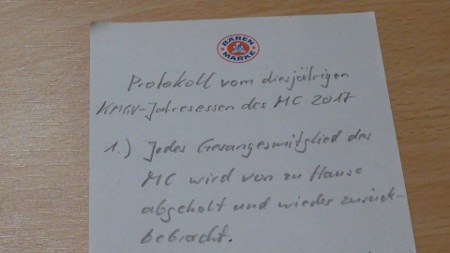 BÄREN
MARKE
Protokoll vom diesjährigen
KMGV-Jahresessen des MC 2017
1.) Jedes Gesangesmitglied des
MC wird von zu Hause
abgeholt und wieder zurück-
bebracht.